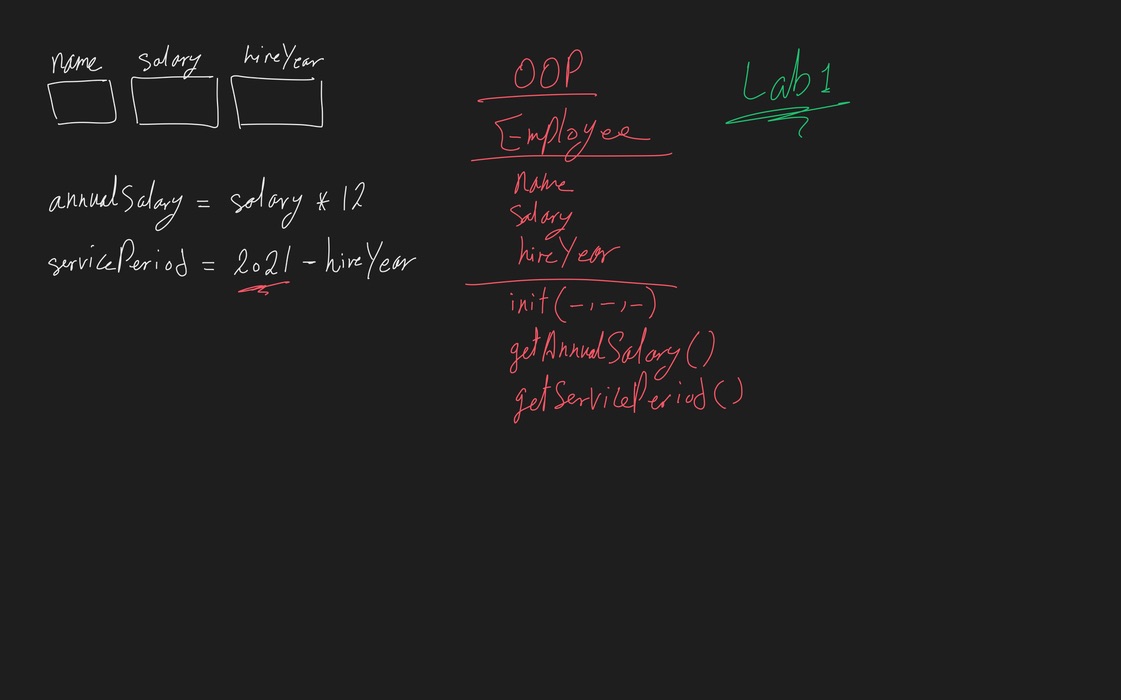 name salary hireYear
annualSalary = salary * 12
servicePeriod = 2021 - hireYear
OOP
Employee
name
salary
hireYear
init(-,-,-)
getAnnualSalary()
getServicePeriod()
Lab1